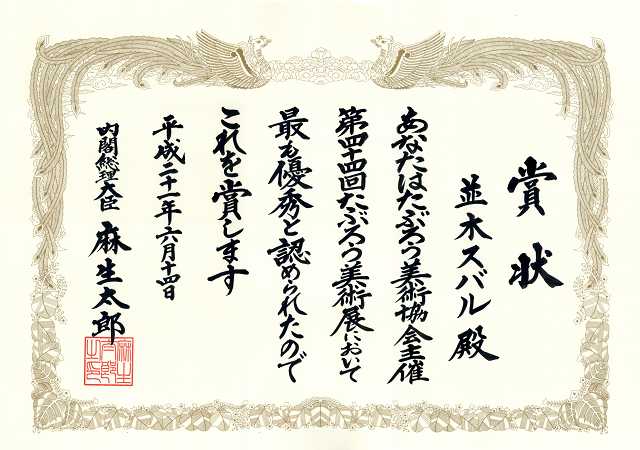 賞状
並木スバル殿
あなたはたぶろう美術協会主催
第四十四回たぶろう美術展において
最も優秀と認められたので
これを賞します
平成二十一年六月十四日
内閣総理大臣 麻生太郎
麻生太郎之印